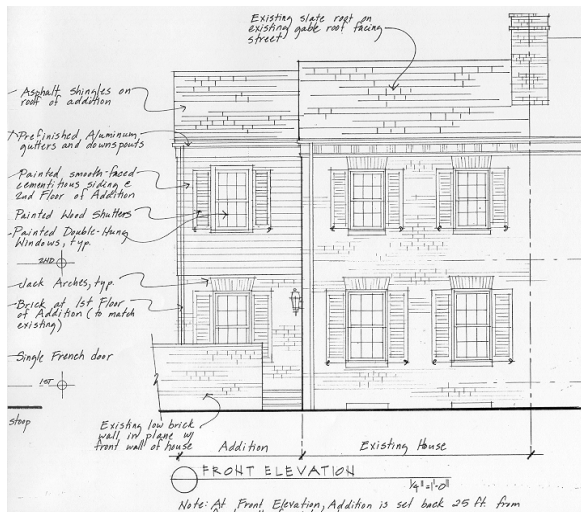 Existing slate roof on
existing gable roof facing
street
Asphalt Shingles on
roof of addition
Prefinished Aluminum
gutters and downspouts
Painted smooth-faced
cementitious siding @
2nd Floor of Addition
Painted Wood Shutters
Painted Double-Hung
Windows, typ.
2ND
Jack Arches, typ.
Brick at 1st Floor
of Addition (to match
existing)
Single French door
1ST
stoop
Existing low brick
wall in plane w/
front wall of house
Addition
Existing House
FRONT ELEVATION
1/4"=1'-0"
Note: At Front Elevation, Addition is set back 25 ft. from